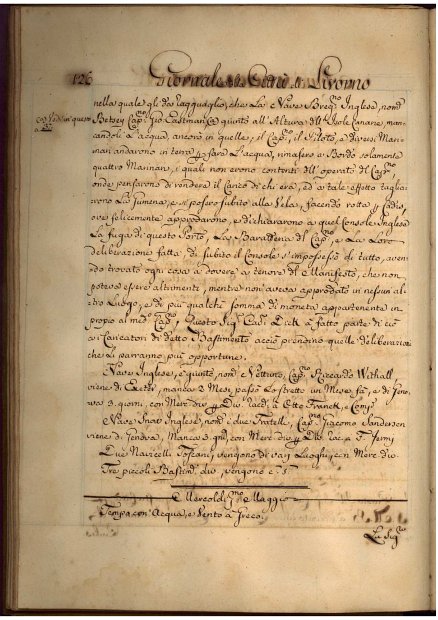 126 Giornale della Città di Livorno
nella quale gli dà ragguaglio, che La Nave Breq.º Inglese, nom.º
Betsey Cap.º Gio Eastman Ca giunto all' Altura dell' Isole Canarie, man
candoli a acqua, ancorò in quelle, il Cap.º, il Piloto, e diversi Mari
nari andarono in terra p farsi l'acqua, rimasero a Bordo solamente
quattro Marinari, i quali non erono contenti dell' operato del Cap.º
onde pensarono di rendere il Carico di chi era, ed a tale effetto taglia
rono La Gumena, e si posero subito alla Vela, facendo rotta p Cadis,
ove felicemente approdarono, e dichiararono a quel Console Inglese
La fuga di questo Porto, La Baratteria del Cap.º, e La Loro
deliberazione fatta, di subito il Console s'impossessò di tutto, aven
do trovato ogni cosa a dovere a tenore del Manifesto, che non
poteva essere altrimenti, mentre non aveva approdato in nessun al
tro Luogo, e di più qualche somma di moneta appartenente in
proprio al med.º Cap.º, Questo Sig.º
a fatto parte di ciò
ai Caricatori di detto Bastimento acciò prendino quelle deliberazioni
che Li parranno più opportune.
Nave Inglese, è giunto, nom.º Nettuno, Cap.º Riccardo Wethall
viene di Exeter, manca 2 Mesi, passò Lo stretto un Mese fà, e di Geno
va 3 giorni, con Merc. div.e p Div. Racd. a Otto Franck, e Comp.
Nave Snow Inglese, nom.º i due Fratelli, Cap.º Giacomo Sandersen
viene di Genova, Manca 3 gni, con Merc div.e p Div. Rac. a F. Jermi
Due Navicelli Toscani, vengono di varj Luoghi, con Merc. div.
Tre piccoli Bastim.ti div. vengono c. S.
Mercoldì p.mo Maggio
Tempo con Acqua, e Vento à Greco.
La Sig.ra